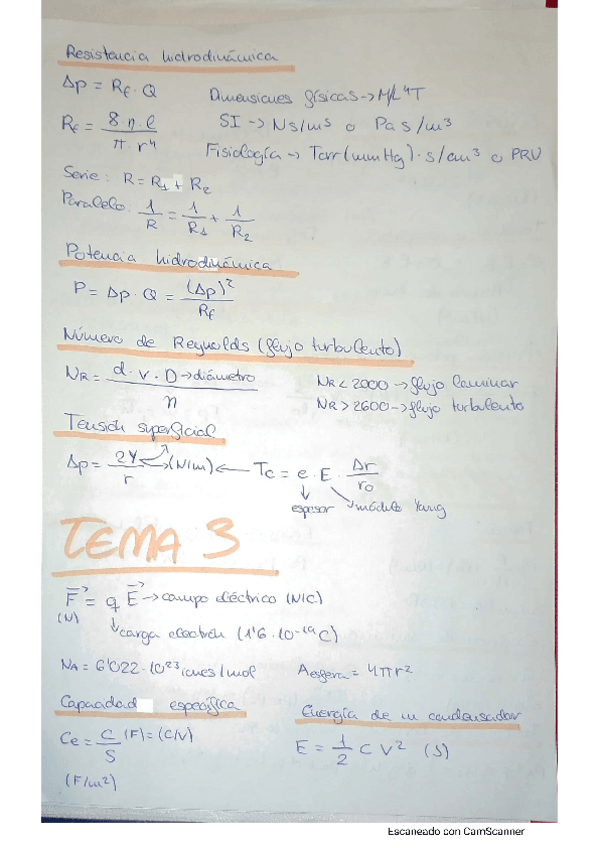 Resistencia hidrodinámica
Δp = Rf · Q
Dimensiones físicas → M/L⁴T
Rf = 8 η · l / π · r⁴
SI → N s/m⁵ o Pa s/m³
Fisiología → Torr (mmHg) · s/cm³ o PRU
Serie: R = R₁ + R₂
Paralelo: 1/R = 1/R₁ + 1/R₂
Potencia hidrodinámica
P = Δp · Q = (Δp)² / Rf
Número de Reynolds (flujo turbulento)
NR = d · v · D → diámetro / η
NR < 2000 → flujo laminar
NR > 2600 → flujo turbulento
Tensión superficial
Δp = 2γ / r → (N/m) ← Tc = e · E · Δr / r₀
↓ espesor ↘ módulo Yang
TEMA 3
F⃗ = q E⃗ → campo eléctrico (N/C)
(N) ↓ carga electrón (1'6 · 10⁻¹⁹ C)
NA = 6'022 · 10²³ iones/mol
Aesfera = 4πr²
Capacidad específica
Ce = C/S (F) = (C/V)
(F/m²)
Energía de un condensador
E = 1/2 C V² (J)
Escaneado con CamScanner